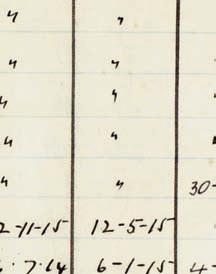 " "
" "
" "
" "
" " 30-
2-11-15 12-5-15
7.14 6-1-15 4-